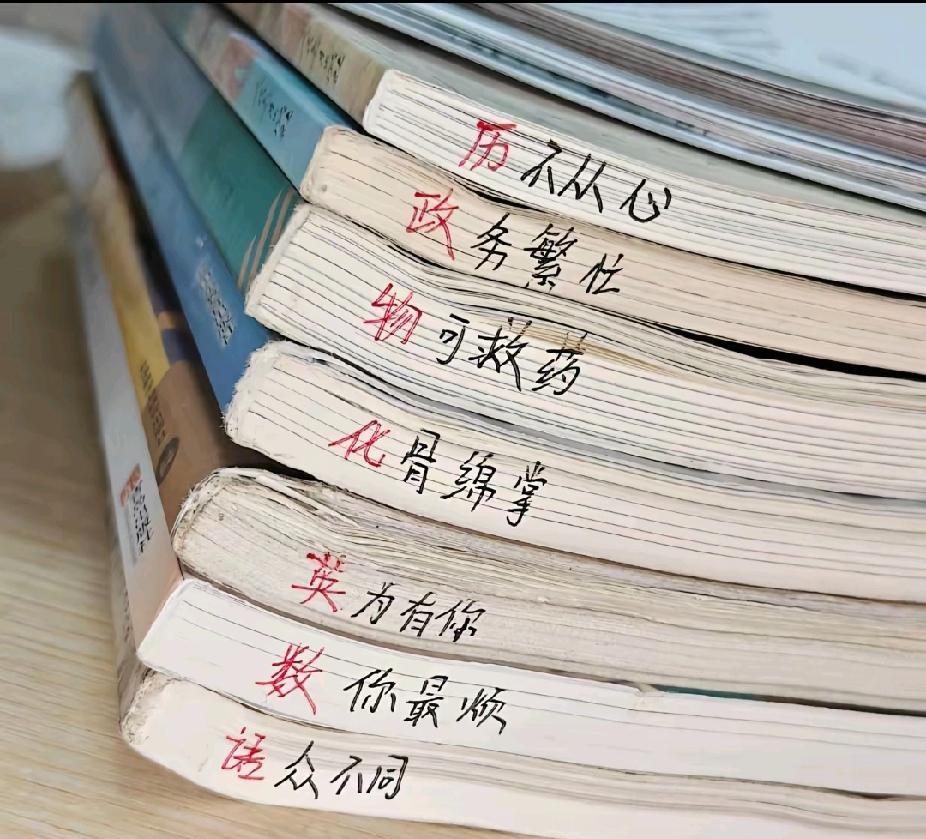 历不从心
政务繁忙
物可救药
化骨绵掌
英为有你
数你最烦
语众不同